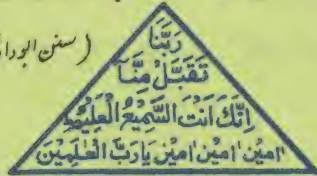 رَبَّنَا
(سنن ابوداؤ
تَقَبَّلْ مِنَّا
اِنَّكَ اَنْتَ السَّمِيْعُ الْعَلِيْمُ
اٰمِيْن اٰمِيْن اٰمِيْن يَارَبَّ الْعٰلَمِيْن